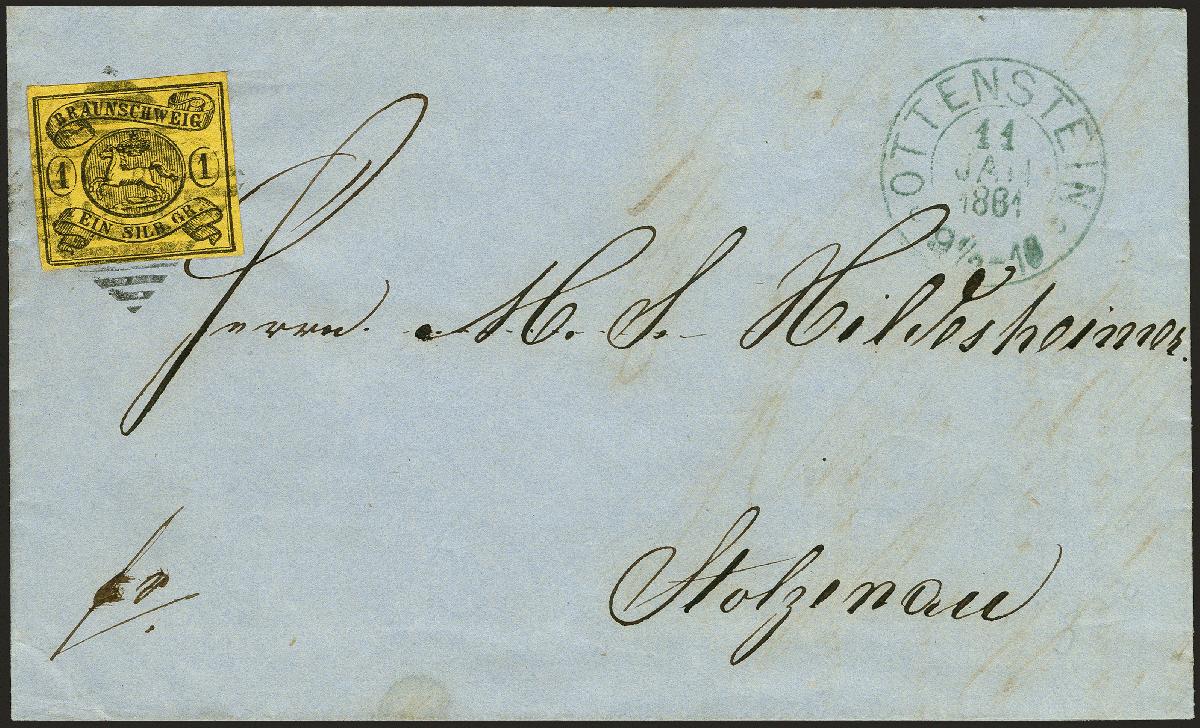 BRAUNSCHWEIG
1 1
EIN SILB. GR.
OTTENSTEIN
11
JAN
1861
9½-10
Herrn M. S. Hildesheimer.
fr.
Stolzenau